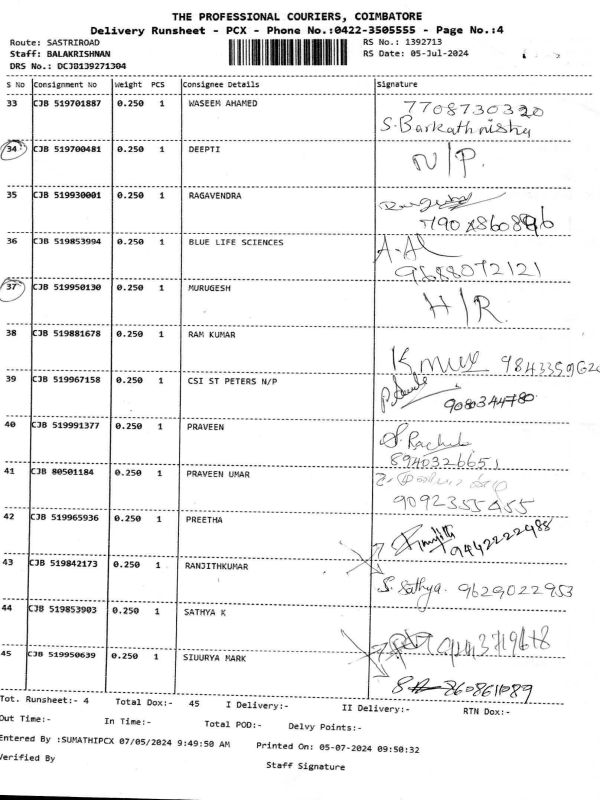 THE PROFESSIONAL COURIERS, COIMBATORE
Delivery Runsheet - PCX - Phone No.:0422-3505555 - Page No.:4
Route: SASTRIROAD RS No.: 1392713
Staff: BALAKRISHNAN RS Date: 05-Jul-2024
DRS No.: DCJB139271304
S No Consignment No Weight PCS Consignee Details Signature
33 CJB 519701887 0.250 1 WASEEM AHAMED 7708730320
S.Barkath nisha
34 CJB 519700481 0.250 1 DEEPTI N/P.
35 CJB 519930001 0.250 1 RAGAVENDRA
36 CJB 519853994 0.250 1 BLUE LIFE SCIENCES
9688072121
37 CJB 519950130 0.250 1 MURUGESH H/R.
38 CJB 519881678 0.250 1 RAM KUMAR
39 CJB 519967158 0.250 1 CSI ST PETERS N/P
9080344780
40 CJB 519991377 0.250 1 PRAVEEN
8940326651
41 CJB 80501184 0.250 1 PRAVEEN UMAR
9092355455
42 CJB 519965936 0.250 1 PREETHA
9442222488
43 CJB 519842173 0.250 1 RANJITHKUMAR
S. Sathya. 9629022953
44 CJB 519853903 0.250 1 SATHYA K
45 CJB 519950639 0.250 1 SIUURYA MARK
8608611089
Tot. Runsheet:- 4 Total Dox:- 45 I Delivery:- II Delivery:- RTN Dox:-
Out Time:- In Time:- Total POD:- Delvy Points:-
Entered By :SUMATHIPCX 07/05/2024 9:49:50 AM Printed On: 05-07-2024 09:50:32
Verified By Staff Signature